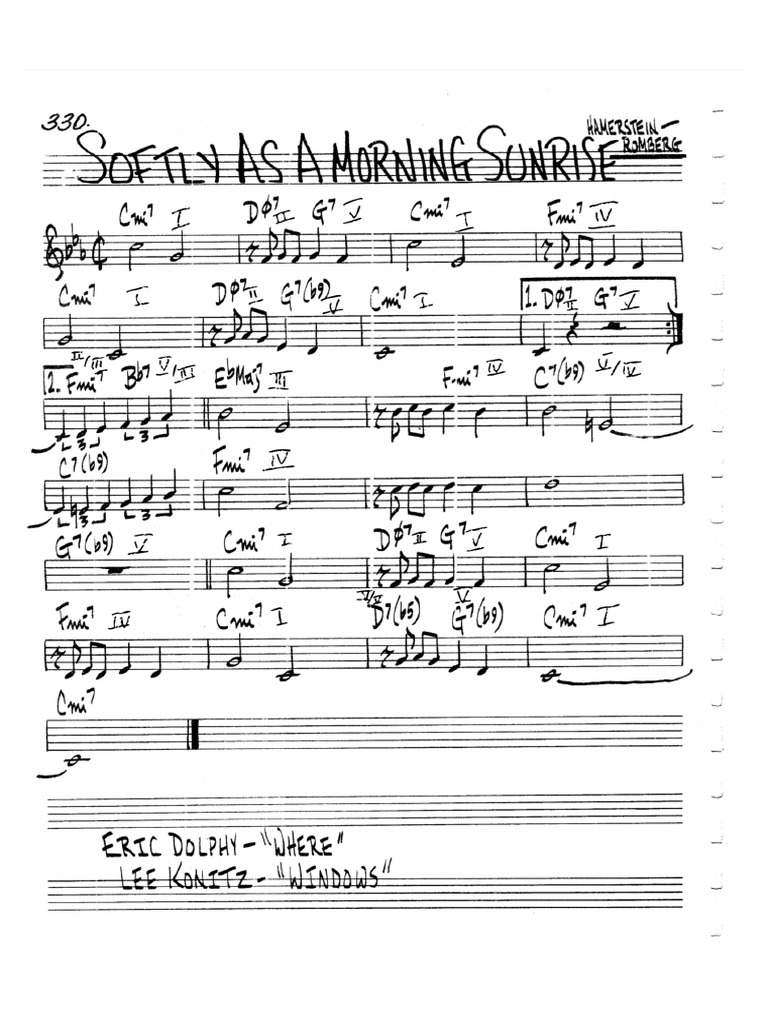 330.
SOFTLY AS A MORNING SUNRISE
HAMERSTEIN-
ROMBERG
Cmi7 I DØ7 II G7 V Cmi7 I Fmi7 IV
Cmi7 I DØ7 II G7(b9) V Cmi7 I 1. DØ7 II G7 V
2. Fmi7 II/III Bb7 V/III EbMaj7 III Fmi7 IV C7(b9) V/IV
3 3
C7(b9) Fmi7 IV
3 3
G7(b9) V Cmi7 I DØ7 II G7 V Cmi7 I
Fmi7 IV Cmi7 I D7(b5) V/V G7(b9) V Cmi7 I
Cmi7
ERIC DOLPHY - "WHERE"
LEE KONITZ - "WINDOWS"